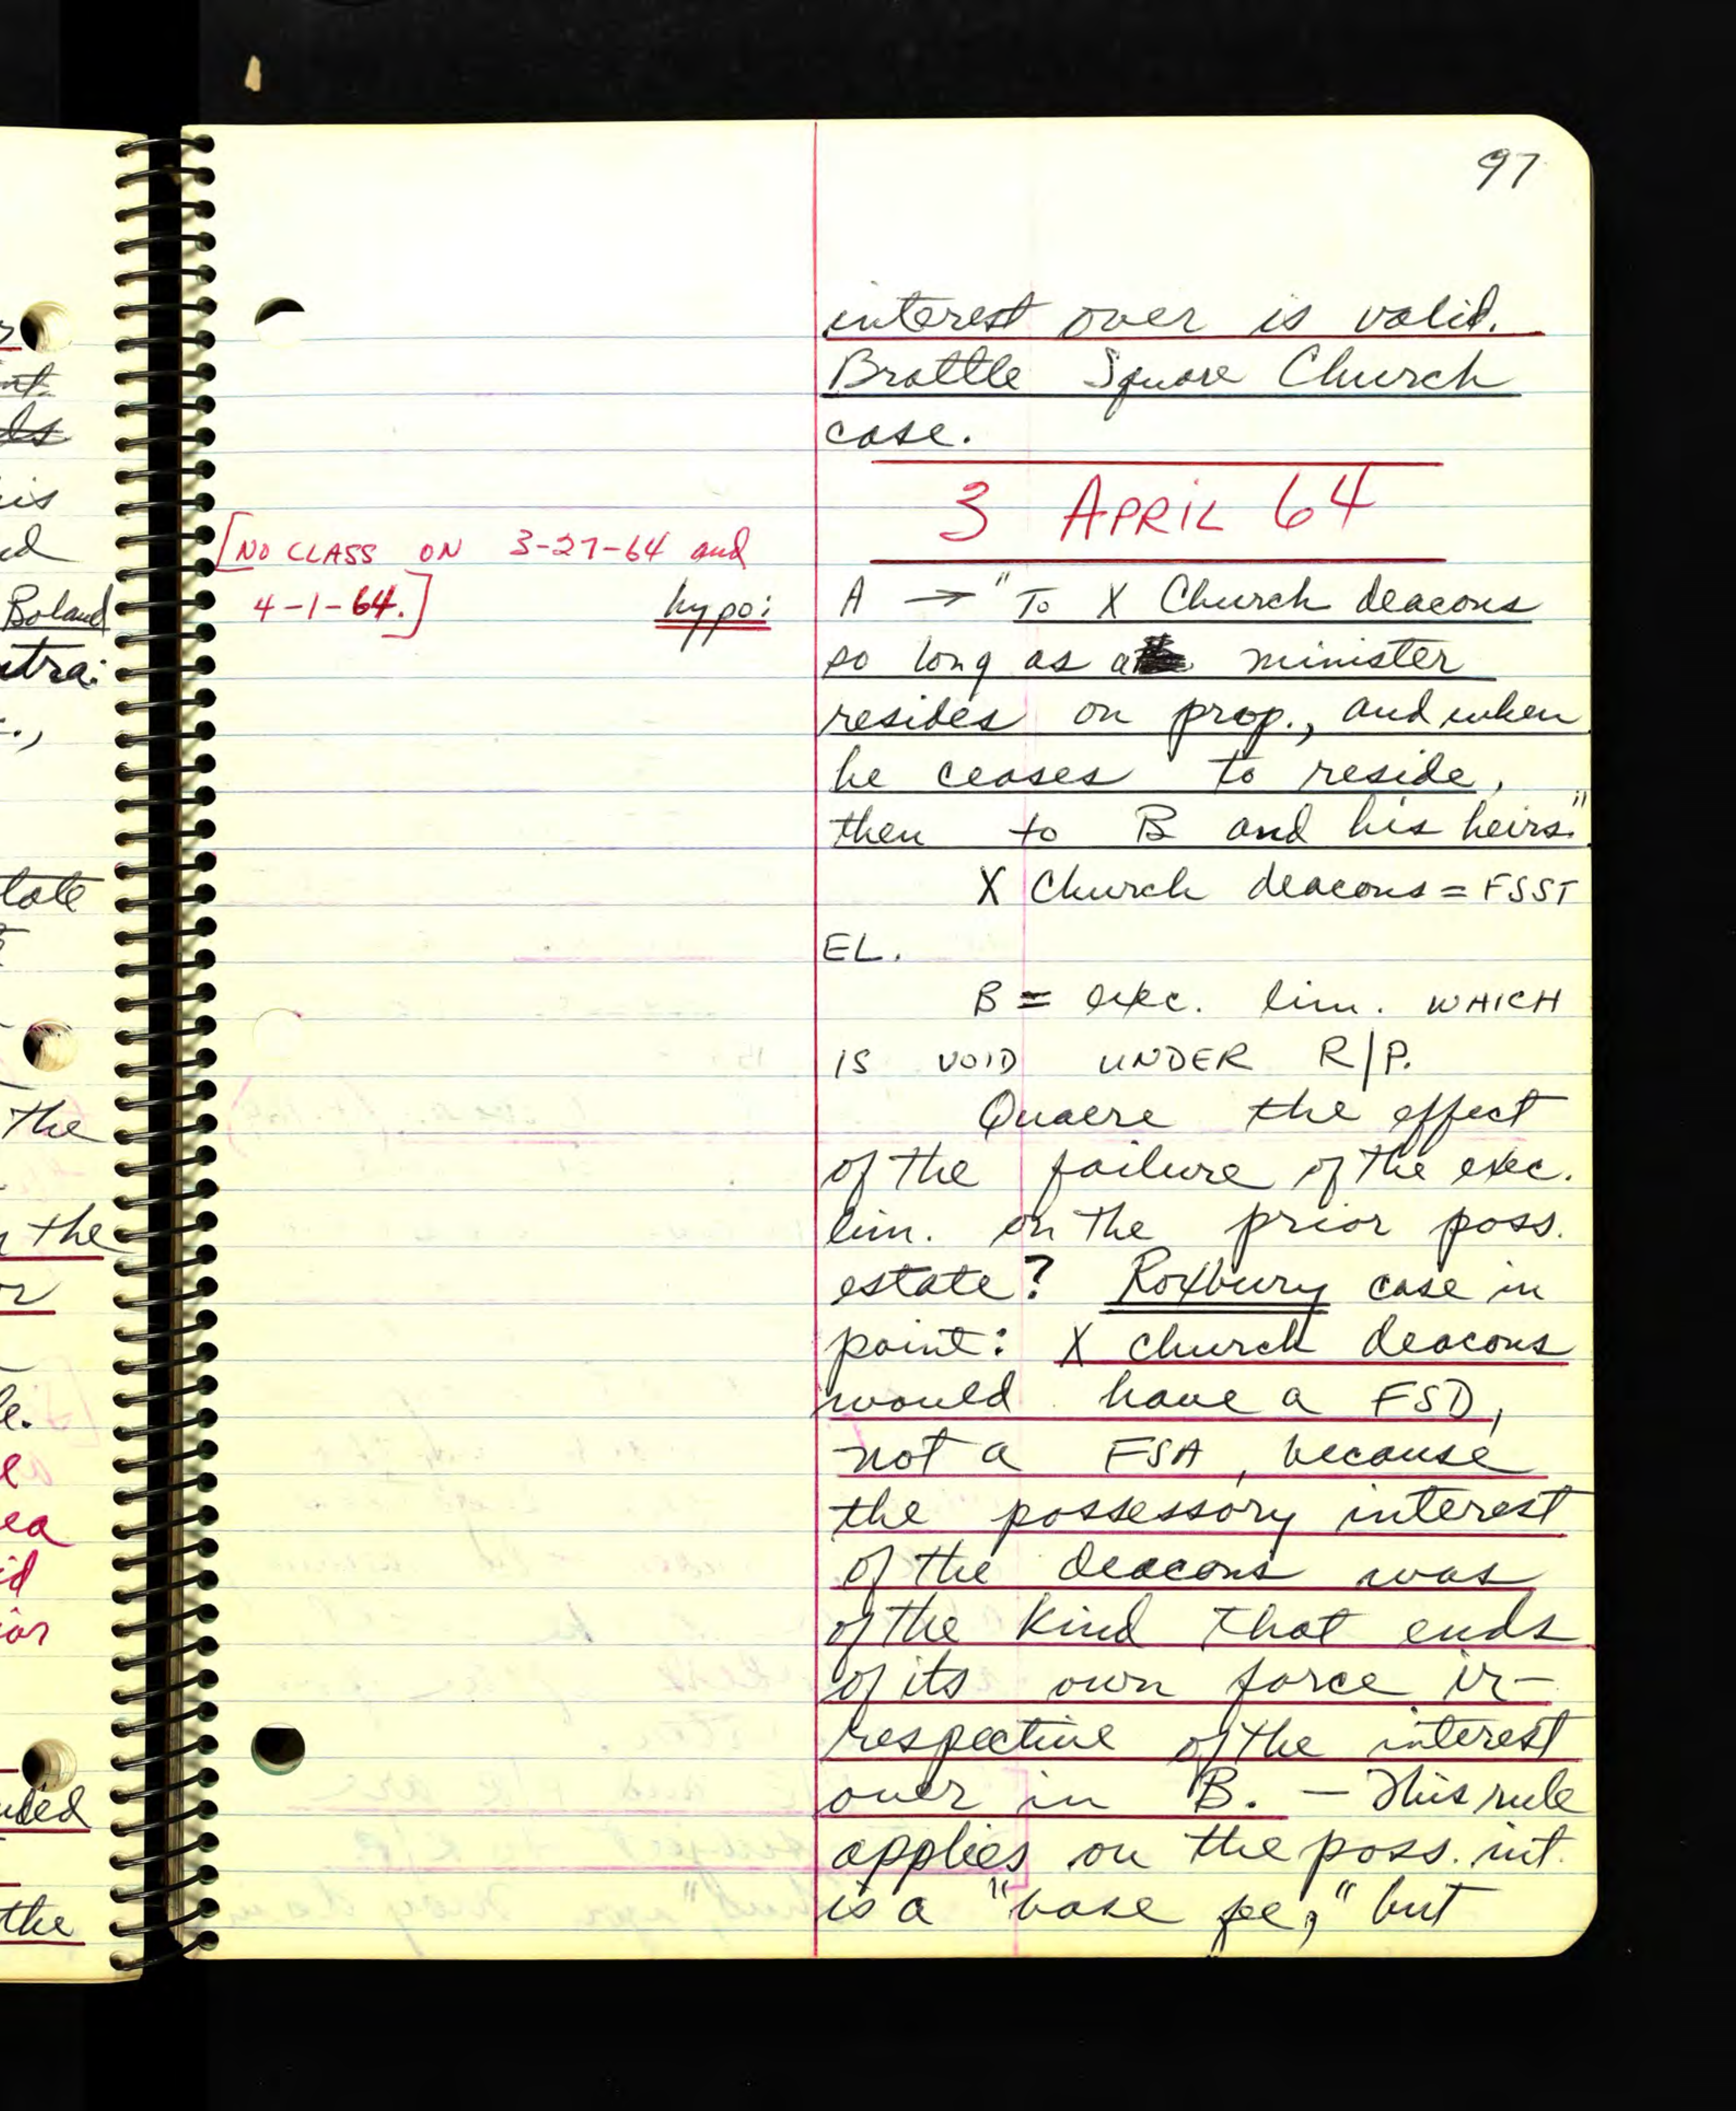 97
interest over is valid.
Brattle Square Church
case.
3 APRIL 64
[NO CLASS ON 3-27-64 and
4-1-64.]
hypo:
A → "To X Church deacons
so long as a minister
resides on prop., and when
he ceases to reside,
then to B and his heirs."
X Church deacons = FSST
EL.
B = exec. lim. WHICH
IS VOID UNDER R/P.
Quaere the effect
of the failure of the exec.
lim. on the prior poss.
estate? Roxbury case in
point: X church deacons
would have a FSD,
not a FSA, because
the possessory interest
of the deacons was
of the kind that ends
of its own force ir-
respective of the interest
over in B. — This rule
applies on the poss. int.
is a "base fee," but
nt.
ds
is
ed
Boland
tra:
tate
the
n the
or
le.
ea
id
ior
uded
the